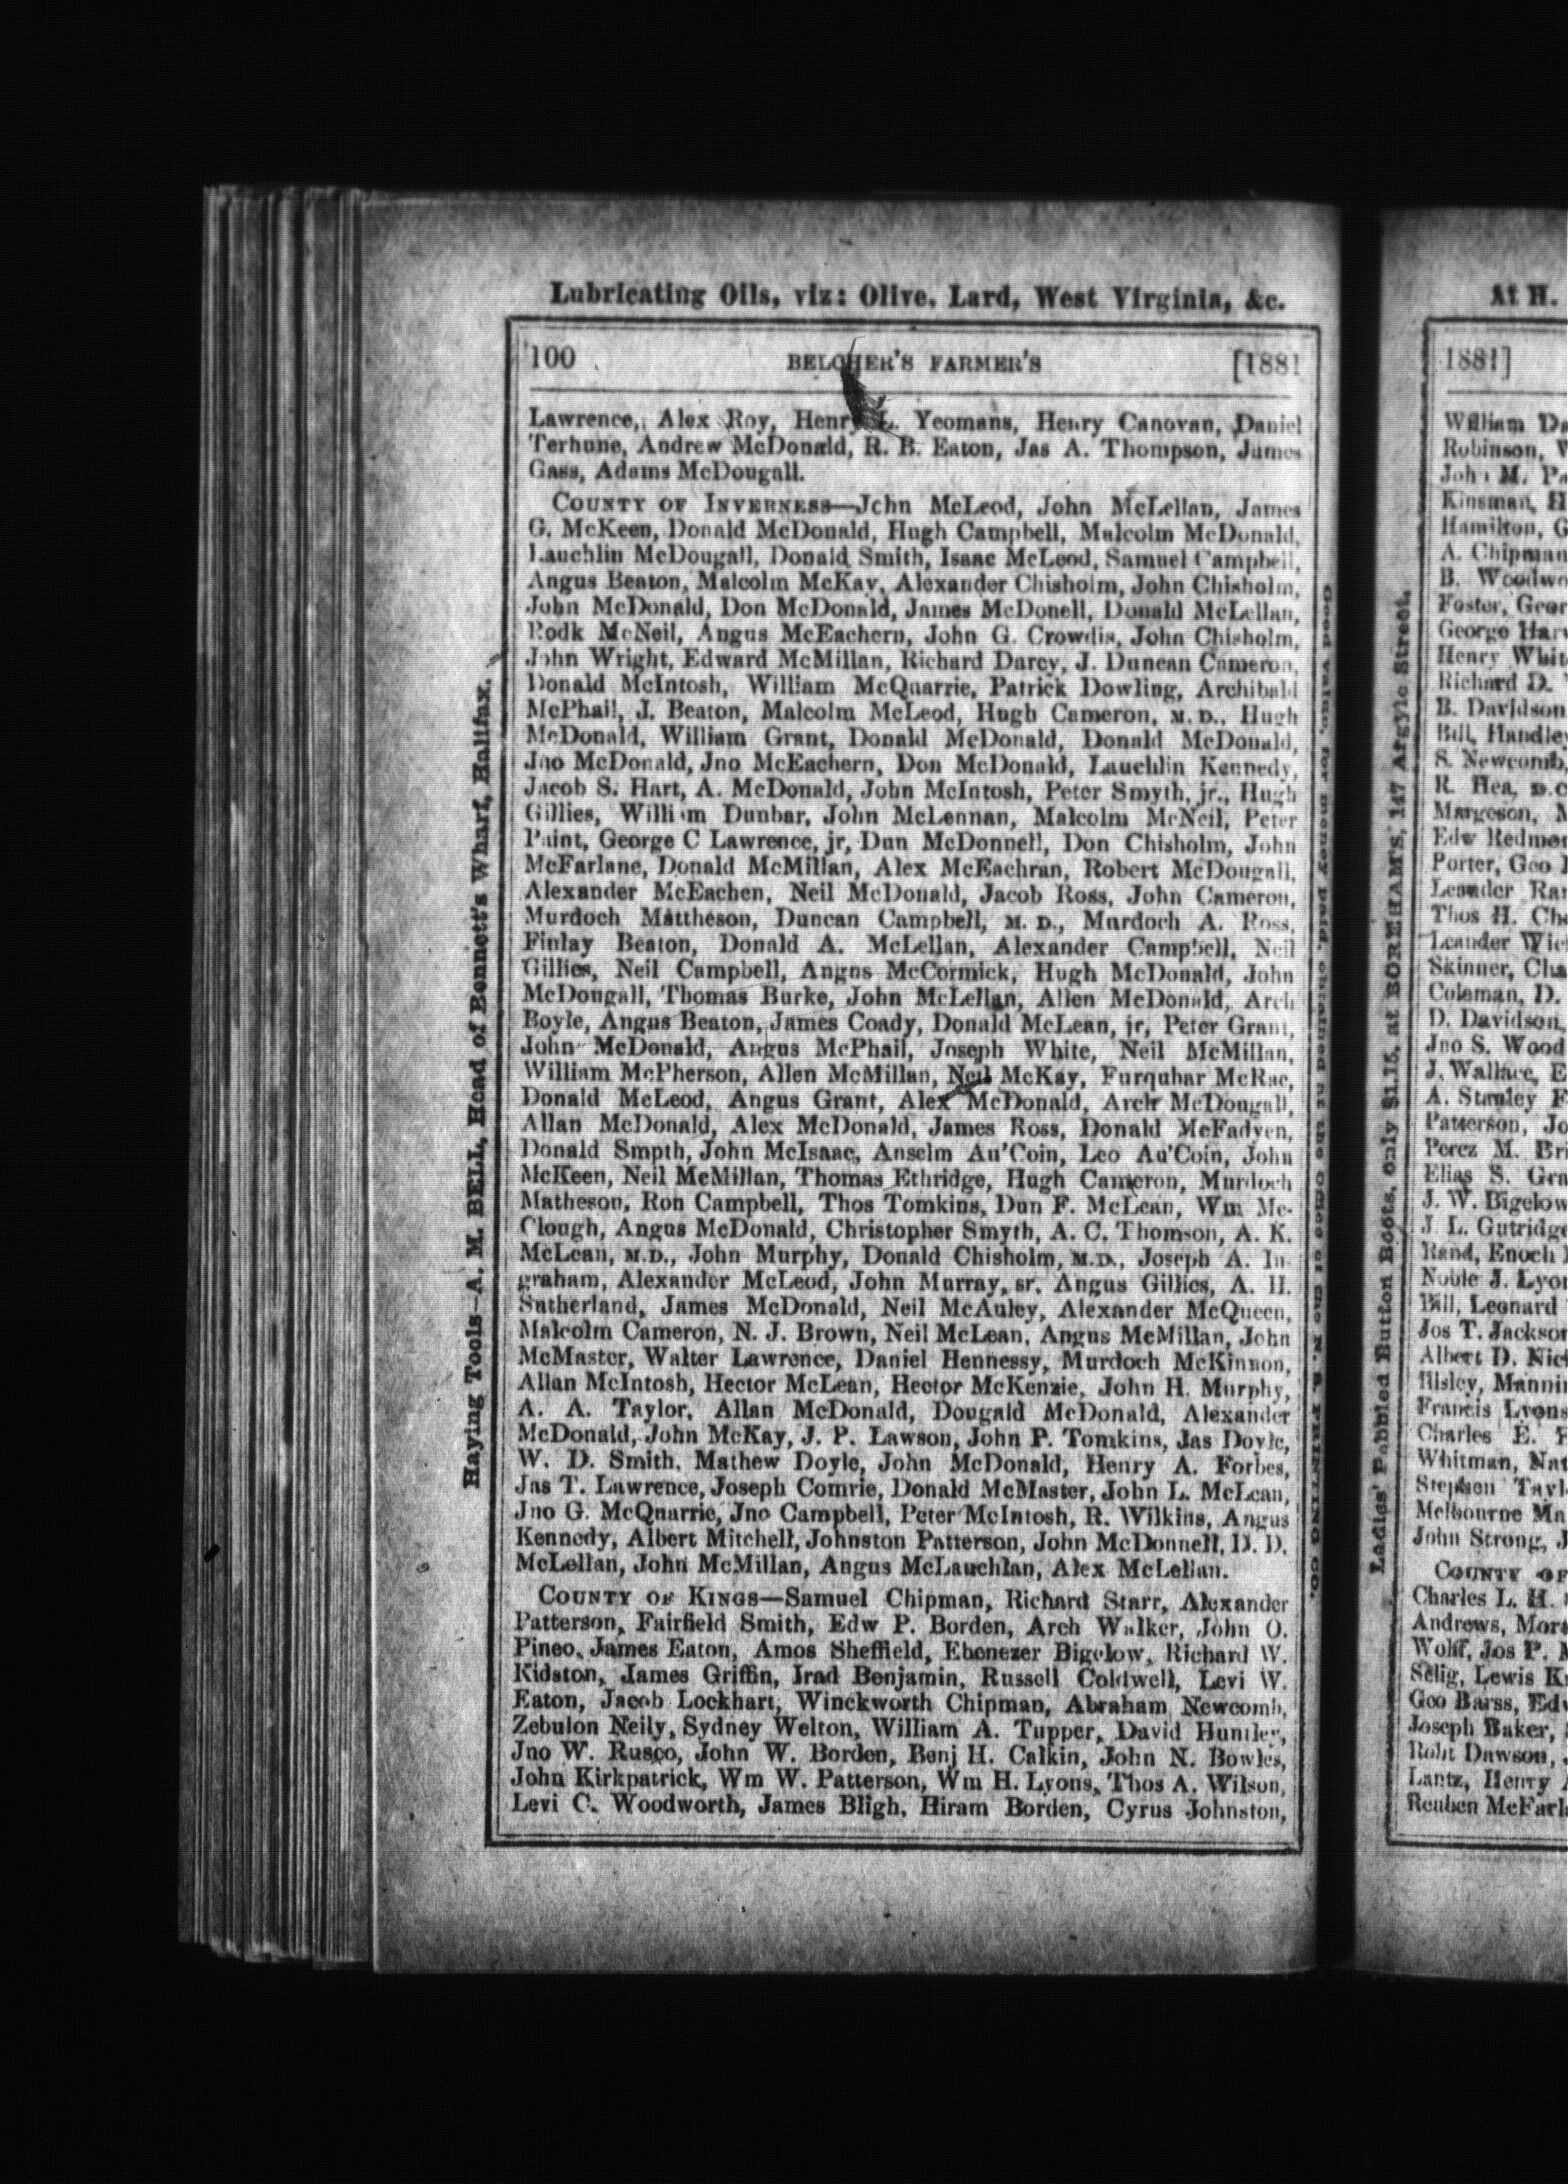 Lubricating Oils, viz: Olive, Lard, West Virginia, &c.
100 BELCHER'S FARMER'S [1881
Lawrence, Alex Roy, Henry L. Yeomans, Henry Canovan, Daniel
Terhune, Andrew McDonald, R. B. Eaton, Jas A. Thompson, James
Gass, Adams McDougall.
COUNTY OF INVERNESS—John McLeod, John McLellan, James
G. McKeen, Donald McDonald, Hugh Campbell, Malcolm McDonald,
Lauchlin McDougall, Donald Smith, Isaac McLeod, Samuel Campbell,
Angus Beaton, Malcolm McKay, Alexander Chisholm, John Chisholm,
John McDonald, Don McDonald, James McDonell, Donald McLellan,
Rodk McNeil, Angus McEachern, John G. Crowdis, John Chisholm,
John Wright, Edward McMillan, Richard Darcy, J. Duncan Cameron,
Donald McIntosh, William McQuarrie, Patrick Dowling, Archibald
McPhail, J. Beaton, Malcolm McLeod, Hugh Cameron, M.D., Hugh
McDonald, William Grant, Donald McDonald, Donald McDonald,
Jno McDonald, Jno McEachern, Don McDonald, Lauchlin Kennedy,
Jacob S. Hart, A. McDonald, John McIntosh, Peter Smyth, jr., Hugh
Gillies, William Dunbar, John McLennan, Malcolm McNeil, Peter
Paint, George C Lawrence, jr, Dun McDonnell, Don Chisholm, John
McFarlane, Donald McMillan, Alex McEachran, Robert McDougall,
Alexander McEachen, Neil McDonald, Jacob Ross, John Cameron,
Murdoch Mattheson, Duncan Campbell, M. D., Murdoch A. Ross,
Finlay Beaton, Donald A. McLellan, Alexander Campbell, Neil
Gillies, Neil Campbell, Angus McCormick, Hugh McDonald, John
McDougall, Thomas Burke, John McLellan, Allen McDonald, Arch
Boyle, Angus Beaton, James Coady, Donald McLean, jr, Peter Grant,
John McDonald, Angus McPhail, Joseph White, Neil McMillan,
William McPherson, Allen McMillan, Neil McKay, Furquhar McRae,
Donald McLeod, Angus Grant, Alex McDonald, Arch McDougall,
Allan McDonald, Alex McDonald, James Ross, Donald McFadyen,
Donald Smpth, John McIsaac, Anselm Au'Coin, Leo Au'Coin, John
McKeen, Neil McMillan, Thomas Ethridge, Hugh Cameron, Murdoch
Matheson, Ron Campbell, Thos Tomkins, Dun F. McLean, Wm Mc-
Clough, Angus McDonald, Christopher Smyth, A. C. Thomson, A. K.
McLean, M.D., John Murphy, Donald Chisholm, M.D., Joseph A. In-
graham, Alexander McLeod, John Murray, sr, Angus Gillies, A. H.
Sutherland, James McDonald, Neil McAuley, Alexander McQueen,
Malcolm Cameron, N. J. Brown, Neil McLean, Angus McMillan, John
McMaster, Walter Lawrence, Daniel Hennessy, Murdoch McKinnon,
Allan McIntosh, Hector McLean, Hector McKenzie, John H. Murphy,
A. A. Taylor, Allan McDonald, Dougald McDonald, Alexander
McDonald, John McKay, J. P. Lawson, John P. Tomkins, Jas Doyle,
W. D. Smith, Mathew Doyle, John McDonald, Henry A. Forbes,
Jas T. Lawrence, Joseph Comrie, Donald McMaster, John L. McLean,
Jno G. McQuarrie, Jno Campbell, Peter McIntosh, R. Wilkins, Angus
Kennedy, Albert Mitchell, Johnston Patterson, John McDonnell, D. D.
McLellan, John McMillan, Angus McLauchlan, Alex McLellan.
COUNTY OF KINGS—Samuel Chipman, Richard Starr, Alexander
Patterson, Fairfield Smith, Edw P. Borden, Arch Walker, John O.
Pineo, James Eaton, Amos Sheffield, Ebenezer Bigelow, Richard W.
Kidston, James Griffin, Irad Benjamin, Russell Coldwell, Levi W.
Eaton, Jacob Lockhart, Winckworth Chipman, Abraham Newcomb,
Zebulon Neily, Sydney Welton, William A. Tupper, David Huntley,
Jno W. Rusco, John W. Borden, Benj H. Calkin, John N. Bowles,
John Kirkpatrick, Wm W. Patterson, Wm H. Lyons, Thos A. Wilson,
Levi C. Woodworth, James Bligh, Hiram Borden, Cyrus Johnston,
Haying Tools—A. M. BELL, Head of Bennett's Wharf, Halifax.
Good value, for money paid, obtained at the office of the N. S. PRINTING CO.
Ladies' Pebbled Button Boots, only $1.15, at BOREHAM'S, 147 Argyle Street.
At H.
1881]
William
Robinson,
John M.
Kinsman, H
Hamilton, G
A. Chipman
B.
Foster, Geor
George Har
Henry Whit
Richard D.
B. Davidson
Bill, Handley
S. Newcomb,
R. Hea, D.C
Margeson,
Edw Redmo
Porter, Geo
Leander Ran
Thos H. Ch
Leander
Skinner, Cha
Coleman, D.
D. Davidson
Jno S. Wood
J. Wallace, E
A. Stanley F
Patterson, Jo
Perez M.
Elias S. Gra
J. W. Bigelow
J. L. Gutridge
Rand, Enoch
Noble J. Lyon
Bill, Leonard
Jos T. Jackson
Albert D.
Illsley, Manni
Francis Lyons
Charles E. F
Whitman, Nat
Stephen Tayl
Melbourne Ma
John Strong, J
COUNTY OF
Charles L. H.
Andrews,
Wolff, Jos P. M
Selig, Lewis K
Geo Barss, Edw
Joseph Baker,
Robt Dawson,
Lantz, Henry
Reuben McFarl